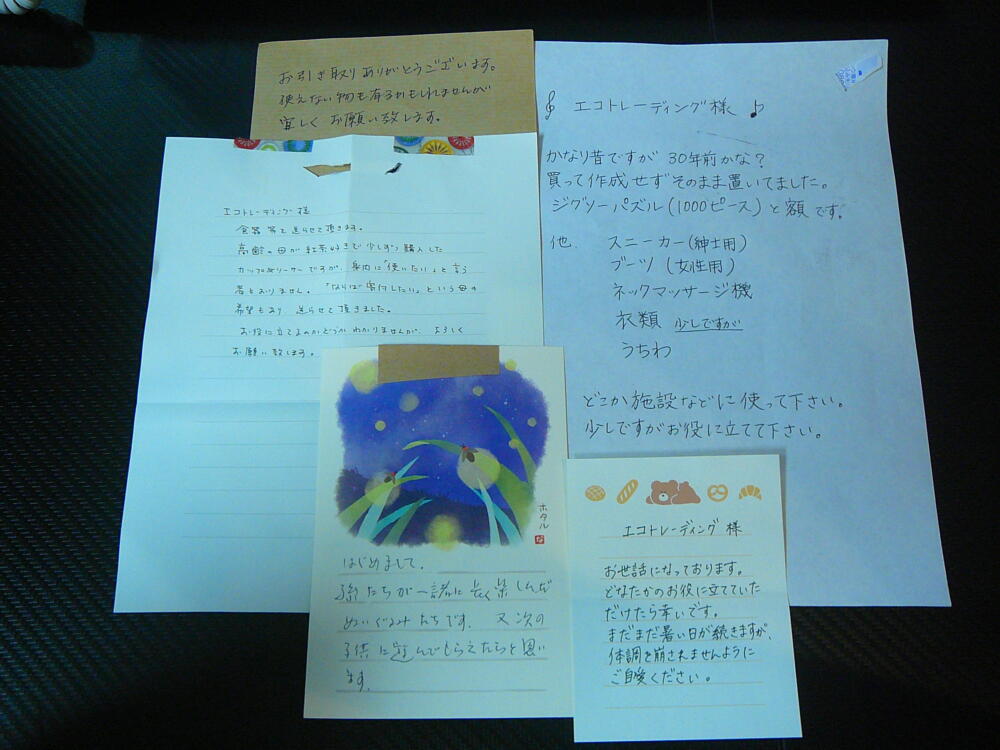 お引き取りありがとうございます。
使えない物も有るかもしれませんが
宜しくお願い致します。
エコトレーディング様
食器等を送らせて頂きます。
高齢の母が紅茶好きで少しずつ購入した
カップ&ソーサーですが、身内に「使いたい」と言う
者もおりません。「ならば寄付したい」という母の
希望もあり 送らせて頂きました。
お役に立てるのかどうかわかりませんが、よろしく
お願い致します。
エコトレーディング様
かなり昔ですが 30年前かな?
買って作成せずそのまま置いてました。
ジグソーパズル(1000ピース)と額です。
他. スニーカー(紳士用)
ブーツ(女性用)
ネックマッサージ機
衣類 少しですが
うちわ
どこか施設などに使って下さい。
少しですがお役に立てて下さい。
ホタル
はじめまして。
孫たちが一諸に長く楽しんだ
ぬいぐるみたちです。又次の
子供に遊んでもらえたらと思い
ます。
エコトレーディング様
お世話になっております。
どなたかのお役に立てていた
だけたら幸いです。
まだまだ暑い日が続きますが、
体調を崩されませんように
ご自愛ください。